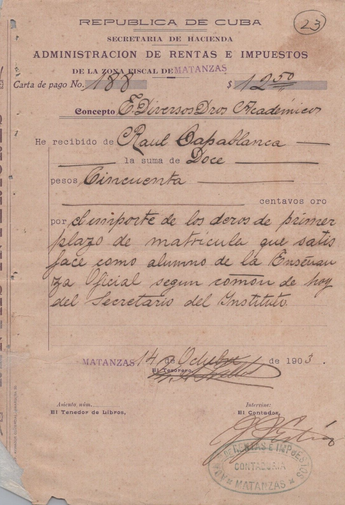 23
REPUBLICA DE CUBA
SECRETARIA DE HACIENDA
ADMINISTRACION DE RENTAS E IMPUESTOS
DE LA ZONA FISCAL DE MATANZAS
Carta de pago No. 188 $ 12.50
Concepto E Diversos Dros Académicos
He recibido de Raul Capablanca
la suma de Doce
pesos Cincuenta
centavos oro
por el importe de los deros de primer
plazo de matricula que satis
face como alumno de la Enseñan
za Oficial segun comon de hoy
del Secretario del Instituto.
MATANZAS 14 de Octubre de 1903.
El Tesorero,
Asiento núm. Intervine:
El Tenedor de Libros, El Contador,
RENTAS E IMPUESTOS
CONTADURIA
MATANZAS